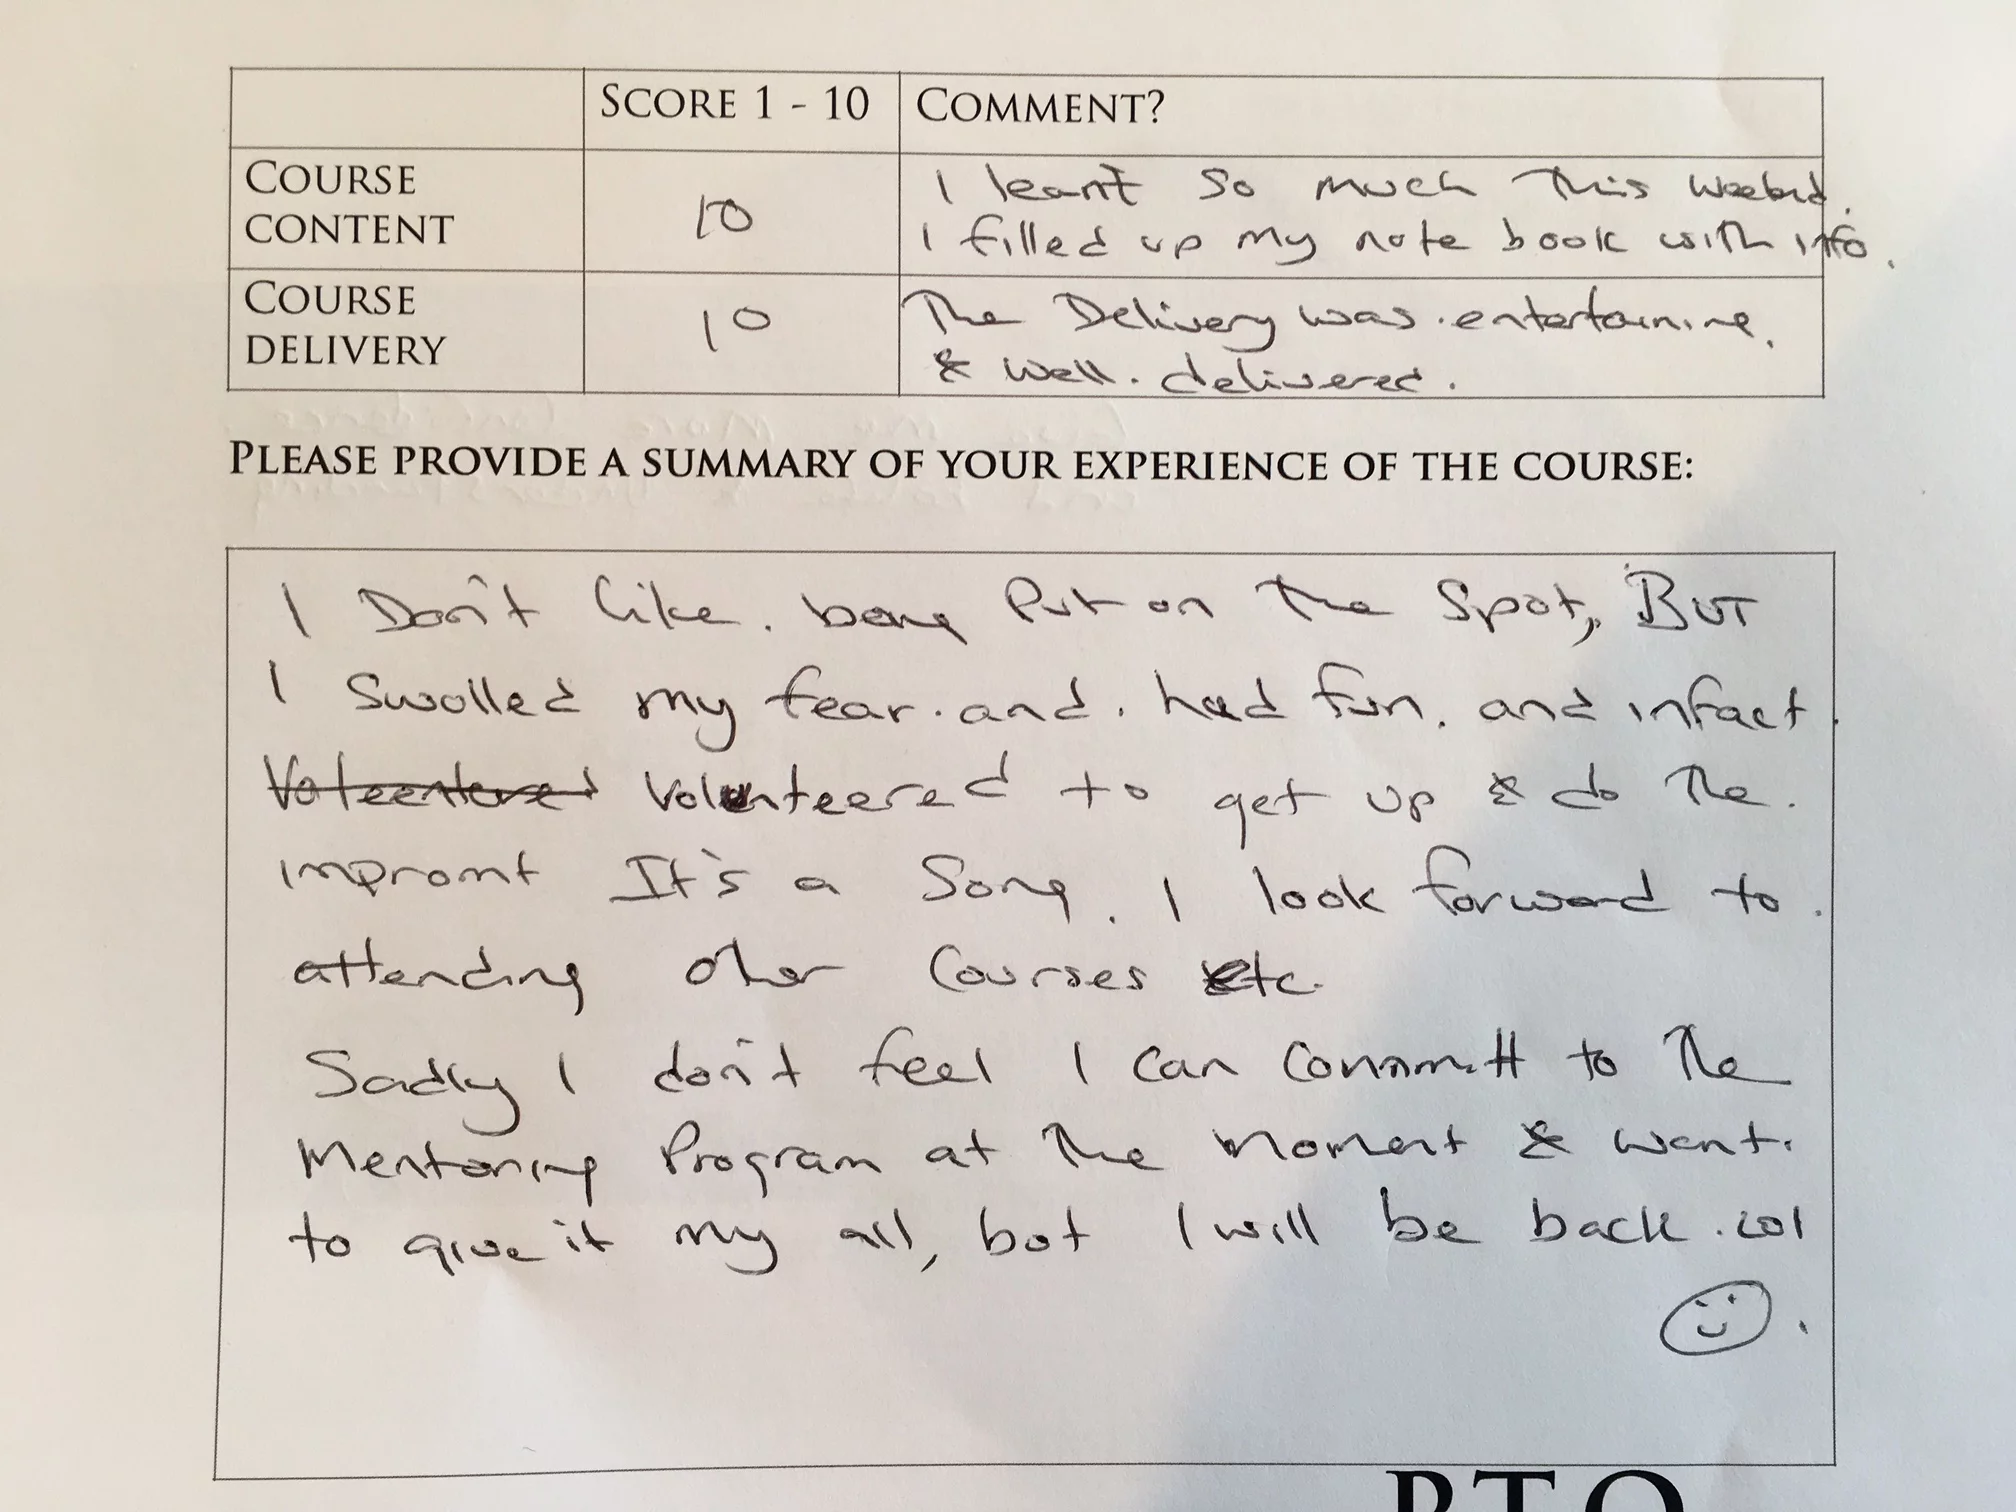 SCORE 1 - 10 COMMENT?
COURSE CONTENT 10 I learnt so much this weekend.
I filled up my note book with info.
COURSE DELIVERY 10 The Delivery was entertaining.
& well. delivered.
PLEASE PROVIDE A SUMMARY OF YOUR EXPERIENCE OF THE COURSE:
I Don't like. being Put on the Spot, BUT
I Swolled my fear. and. had fun. and infact.
Voleentered Volunteered to get up & do the.
impromt It's a Song. I look forward to.
attending other Courses etc.
Sadly I don't feel I can Committ to the
Mentoring Program at the moment & want.
to give it my all, but I will be back. lol
PTO